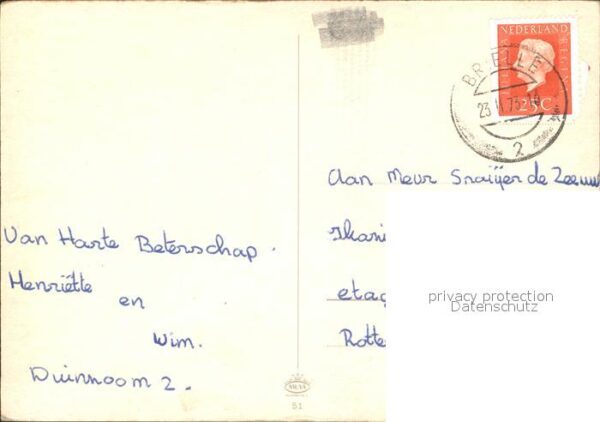 NEDERLAND
25 C
BRIELLE
2
Aan Mevr Snaÿer de Zeeuw
Van Harte Beterschap.
Henriëtte
en
Wim.
Duinnoom 2.
etag
Rotte
privacy protection
Datenschutz
51